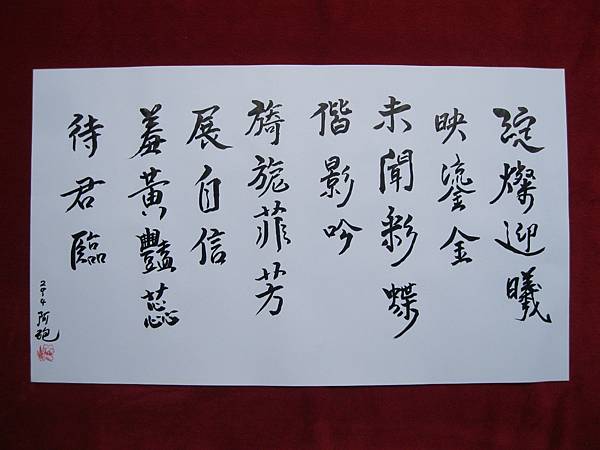 綻燦迎曦
映鎏金
未聞彩蝶
偕影吟
旖旎菲芳
展自信
羞黃豔蕊
待君臨
阿